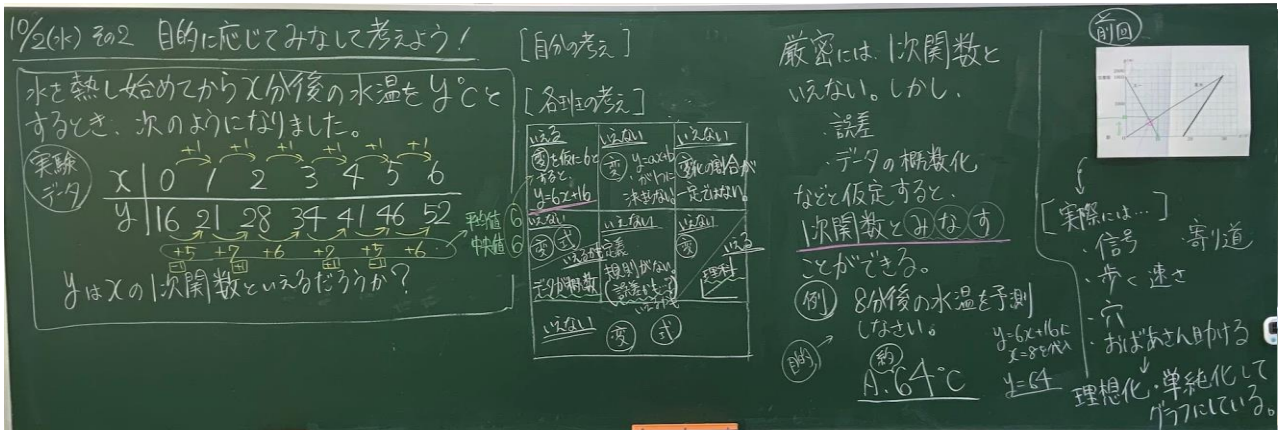 10/2(水) その2 目的に応じてみなして考えよう!
水を熱し始めてからx分後の水温をy℃と
するとき、次のようになりました。
実験
データ
+1 +1 +1 +1 +1 +1
x 0 1 2 3 4 5 6
y 16 21 28 34 41 46 52
+5 +7 +6 +7 +5 +6
-1 +1 +1 -1
平均値 6
中央値 6
yはxの1次関数といえるだろうか?
[自分の考え]
[各班の考え]
いえる
変を仮に6と
すると、
y=6x+16
いえない
変 y=ax+b
いえない
変化の割合が
一定ではない。
いえない
変 式
データが概数
いえない
規則がない。
いえない
変
いえる
理科
いえない
変 式
厳密には、1次関数と
いえない。しかし、
・誤差
・データの概数化
などと仮定すると、
1次関数とみなす
ことができる。
例 8分後の水温を予測
しなさい。
目的
約
A.64℃
y=6x+16に
x=8を代入
y=64
前回
[実際には…]
・信号 ・寄り道
・歩く速さ
・穴
・おばあさん助ける
理想化・単純化して
グラフにしている。